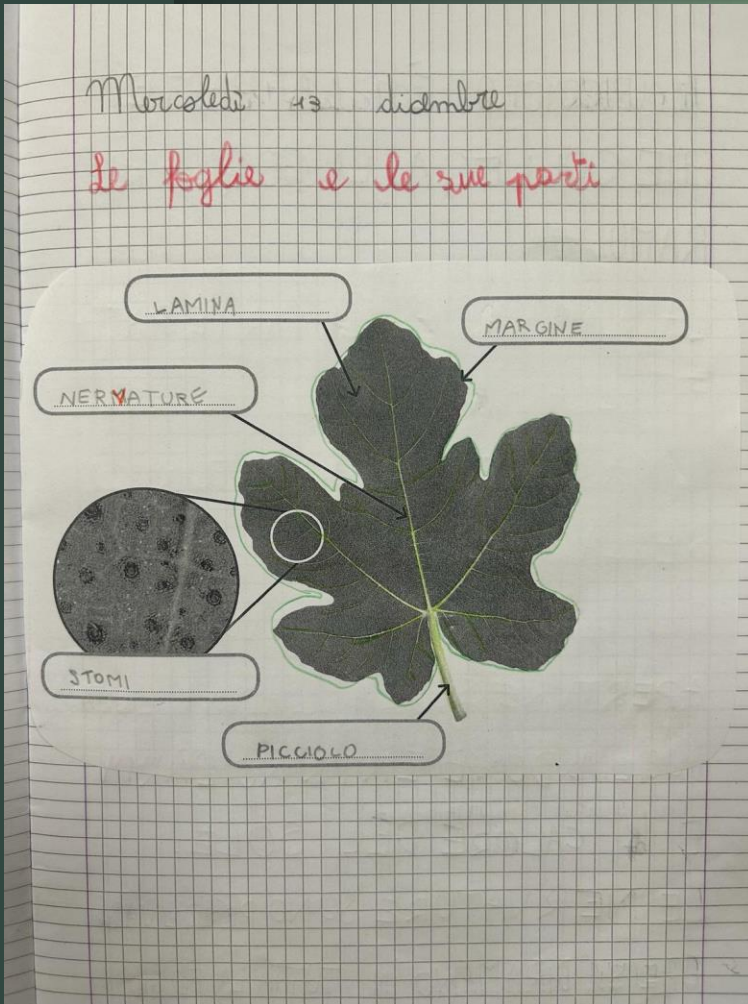 Mercoledì 13 diembre
Le foglie e le sue parti
LAMINA
MARGINE
NERVATURE
STOMI
PICCIOLO